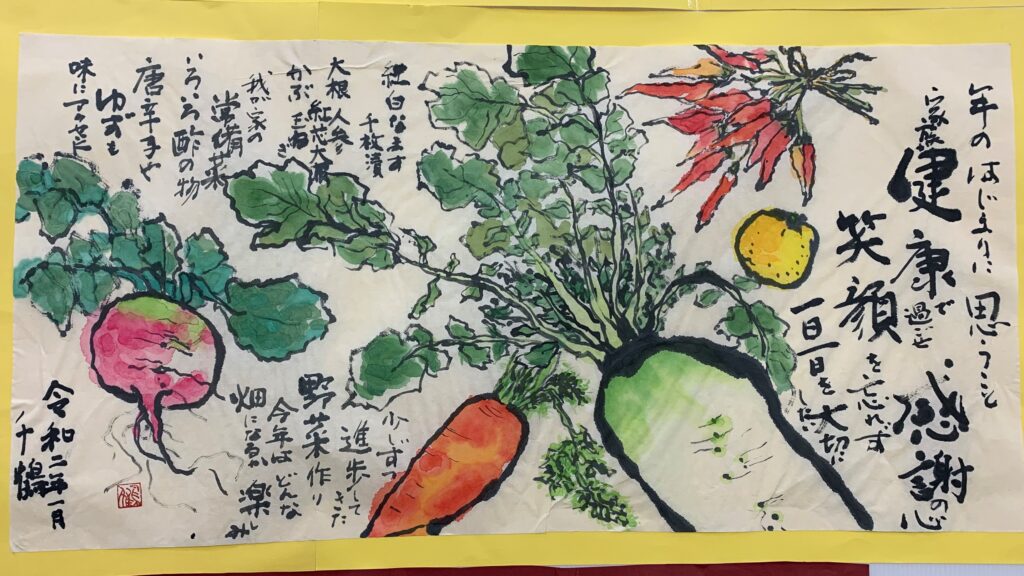 年のはじまりに思うこと
家族健康で過ごせ
感謝の心
笑顔を忘れず
一日一日を大切に
したい
紅白なます
千枚漬
大根 人参
紅芯大根
かぶ 玉ねぎ
我が家の
常備菜
いろいろ酢の物
唐辛子や
ゆずも
味にアクセント
少しずつ
進歩してきた
野菜作り
今年はどんな
畑になるか楽しみ
令和二年一月
千鶴